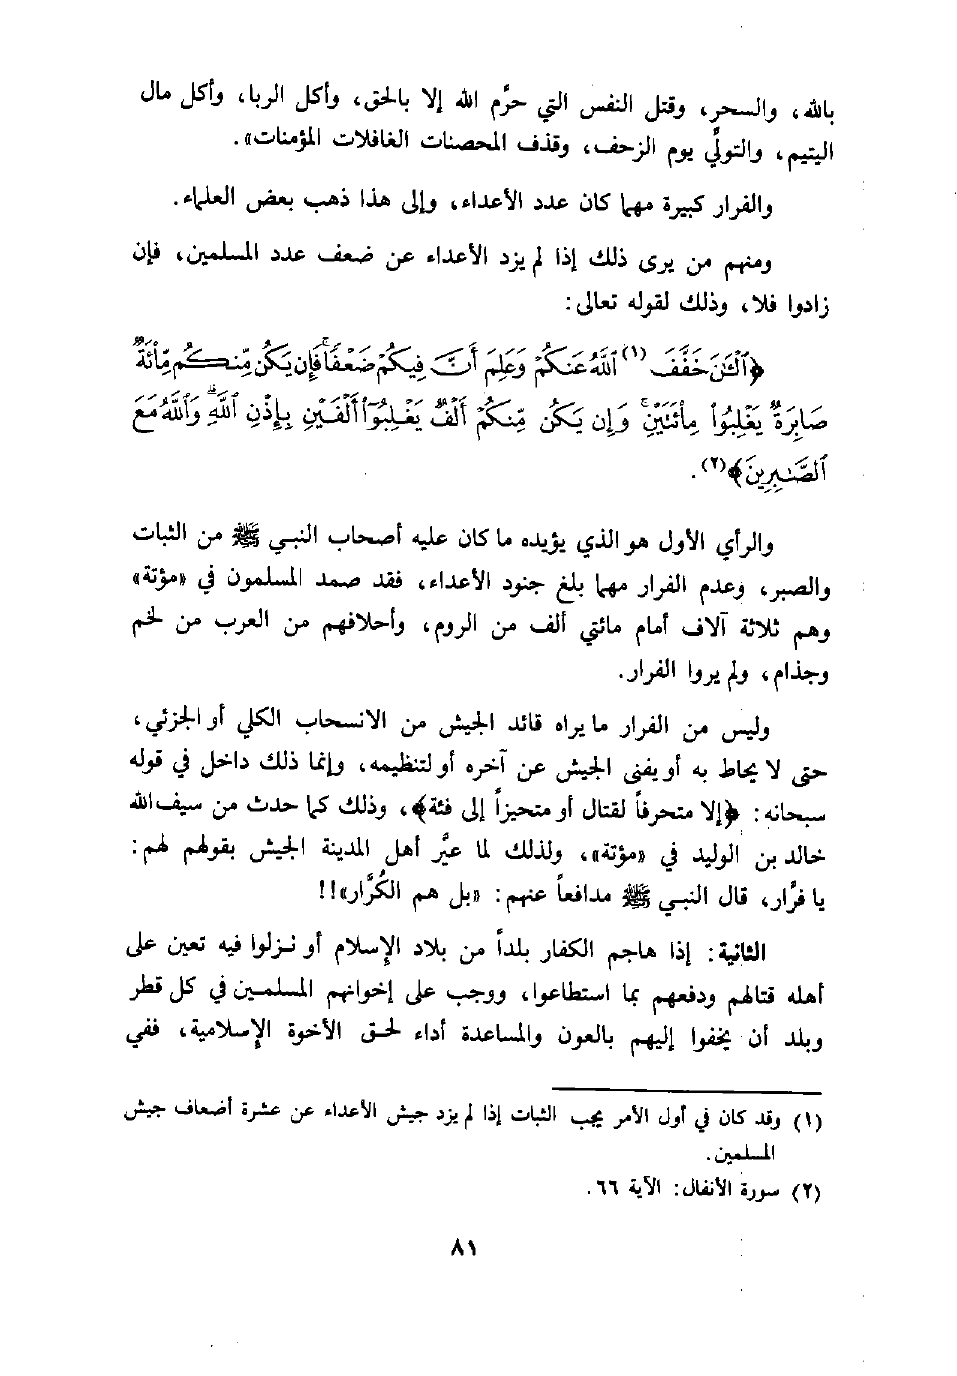 بالله، والسحر، وقتل النفس التي حرَّم الله إلا بالحق، وأكل الربا، وأكل مال
اليتيم، والتولِّي يوم الزحف، وقذف المحصنات الغافلات المؤمنات».
والفرار كبيرة مهما كان عدد الأعداء، وإلى هذا ذهب بعض العلماء.
ومنهم من يرى ذلك إذا لم يزد الأعداء عن ضعف عدد المسلمين، فإن
زادوا فلا، وذلك لقوله تعالى:
﴿ٱلْـَٰٔنَ خَفَّفَ (١) ٱللَّهُ عَنكُمْ وَعَلِمَ أَنَّ فِيكُمْ ضَعْفًا ۚ فَإِن يَكُن مِّنكُم مِّائَةٌ
صَابِرَةٌ يَغْلِبُوا۟ مِا۟ئَتَيْنِ ۚ وَإِن يَكُن مِّنكُمْ أَلْفٌ يَغْلِبُوٓا۟ أَلْفَيْنِ بِإِذْنِ ٱللَّهِ ۗ وَٱللَّهُ مَعَ
ٱلصَّـٰبِرِينَ﴾(٢).
والرأي الأول هو الذي يؤيده ما كان عليه أصحاب النبي ﷺ من الثبات
والصبر، وعدم الفرار مهما بلغ جنود الأعداء، فقد صمد المسلمون في «مؤتة»
وهم ثلاثة آلاف أمام مائتي ألف من الروم، وأحلافهم من العرب من لخم
وجذام، ولم يروا الفرار.
وليس من الفرار ما يراه قائد الجيش من الانسحاب الكلي أو الجزئي،
حتى لا يحاط به أو يفنى الجيش عن آخره أو لتنظيمه، وإنما ذلك داخل في قوله
سبحانه: ﴿إلا متحرفاً لقتال أو متحيزاً إلى فئة﴾، وذلك كما حدث من سيف الله
خالد بن الوليد في «مؤتة»، ولذلك لما عيَّر أهل المدينة الجيش بقولهم لهم:
يا فرَّار، قال النبي ﷺ مدافعاً عنهم: «بل هم الكُرَّار»!!
الثانية: إذا هاجم الكفار بلداً من بلاد الإسلام أو نزلوا فيه تعين على
أهله قتالهم ودفعهم بما استطاعوا، ووجب على إخوانهم المسلمين في كل قطر
وبلد أن يخفوا إليهم بالعون والمساعدة أداء لحق الأخوة الإسلامية، ففي
(١) وقد كان في أول الأمر يجب الثبات إذا لم يزد جيش الأعداء عن عشرة أضعاف جيش
المسلمين.
(٢) سورة الأنفال: الآية ٦٦.
٨١